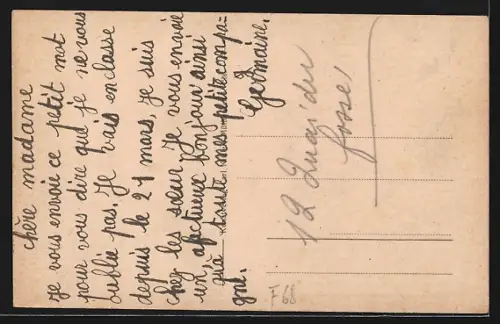 chère madame
Je vous envoie ce petit mot
pour vous dire que je ne vous
oublie pas. Je vais en classe
depuis le 21 mars, je suis
chez les sœur. Je vous envoie
un afectueux bonjour ainsi
qu'à toute mes petite compa-
gne.
Germaine,
12 Quai du
fosse
F68